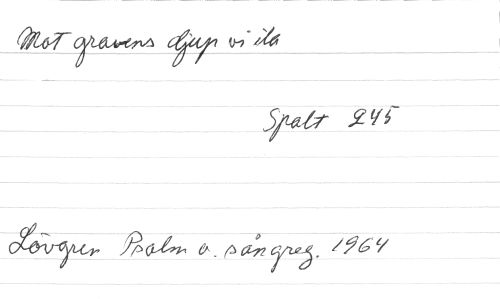 Mot gravens djup vi ila
Spalt 245
Lövgren Psalm o. sångreg. 1964